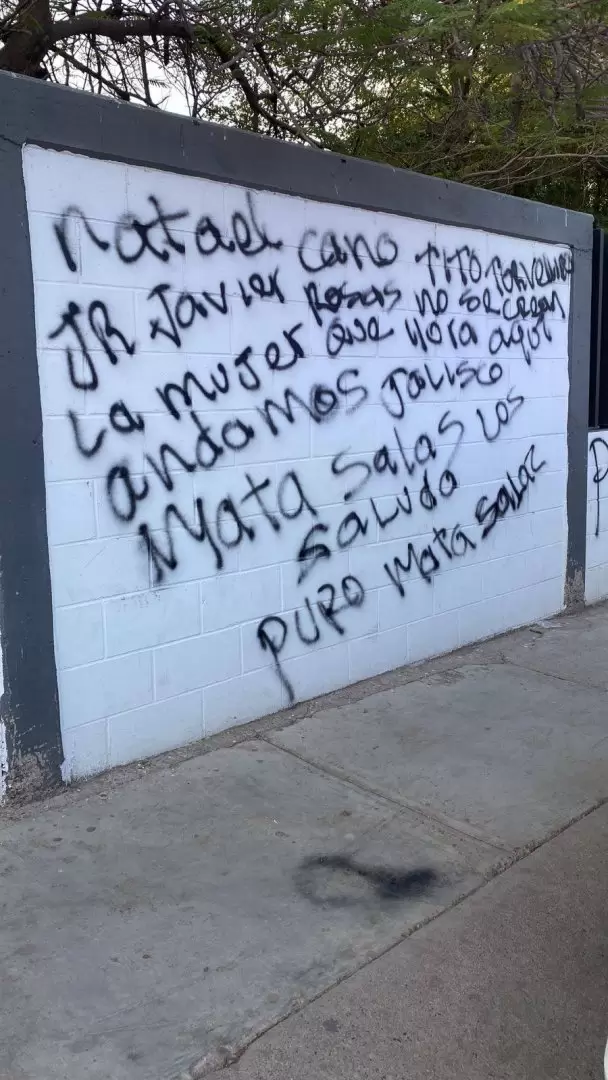 natael cano TITO TORVELLINO
JR Javier Rosas no se crean
La mujer que llora aqui
andamos Jalisco
Mata salas Los
saludo
puro Mata salaz
P